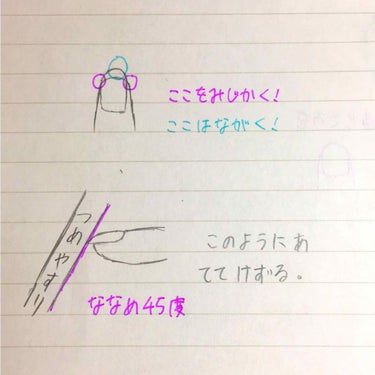 ここをみじかく!
ここはながく!
つめやすり
このようにあ
ててけずる。
ななめ45度